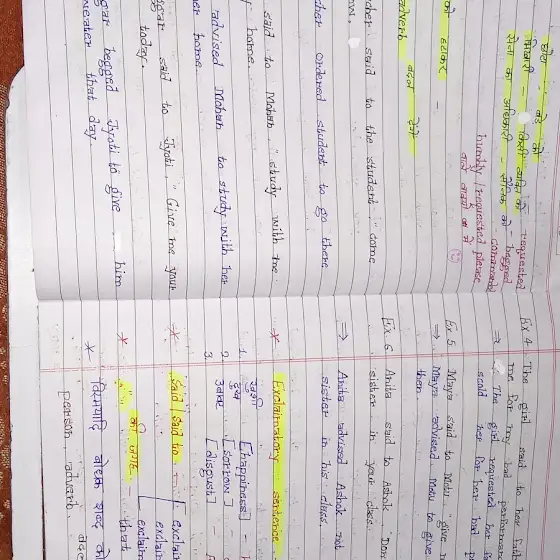 छोटे - बड़े को requested
भिखारी - किसी व्यक्ति को begged
सेना का अधिकारी - सैनिक को command
humbly / requested please
वाले वाक्यों में
को हटाकर -
adverb बदल देंगे
cher said to the student, "come
cher ordered student to go there
said to Mohan "study with me
home.
advised Mohan to study with her
her home.
ggar said to Jyoti, "Give me your
today.
ggar begged Jyoti to give him
sweater that day.
Ex 4. The girl said to her
me for my bad performan
⇒ The girl requested her
scold her for her bad
Ex 5. Maya said to Motu "give
⇒ Maya advised Motu to give
them.
Ex 6 Anita said to Ashok, "Don
sister in your class.
⇒ Anita advised Ashok not
sister in his class.
* Exclaimatory sentence
1. खुशी [happiness] -
2. दुःख [sorrow] -
3. [disgust] -
* Said / Said to - exclai
exclaim
exclai
* " " की जगह - that
* विस्मयादि बोधक शब्द को
person, adverb